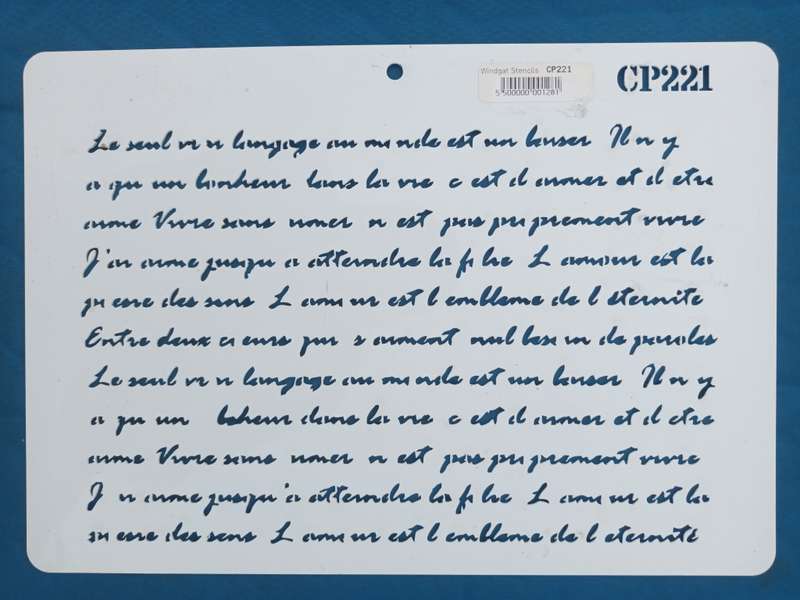 Windgat Stencils CP221
5 500000 001281
CP221
Le seul vr n langage au monde est un baiser Il n y
a qu un bonheur dans la vie c est d aimer et d etre
aime Vivre sans aimer n est pas pr prement vivre
J'ai aime jusqu a atteindre la fo lie L amour est la
pu esse des sens L amour est l embleme de l éternité
Entre deux c eurs qui s aiment nul besoin de paroles
Le seul vr n langage au monde est un baiser Il n y
a qu un boheur dans la vie c est d aimer et d etre
aime Vivre sans aimer n est pas pr prement vivre
J ai aime jusqu'a atteindre la fo lie L amour est la
esse des sens L amour est l embleme de l eternité